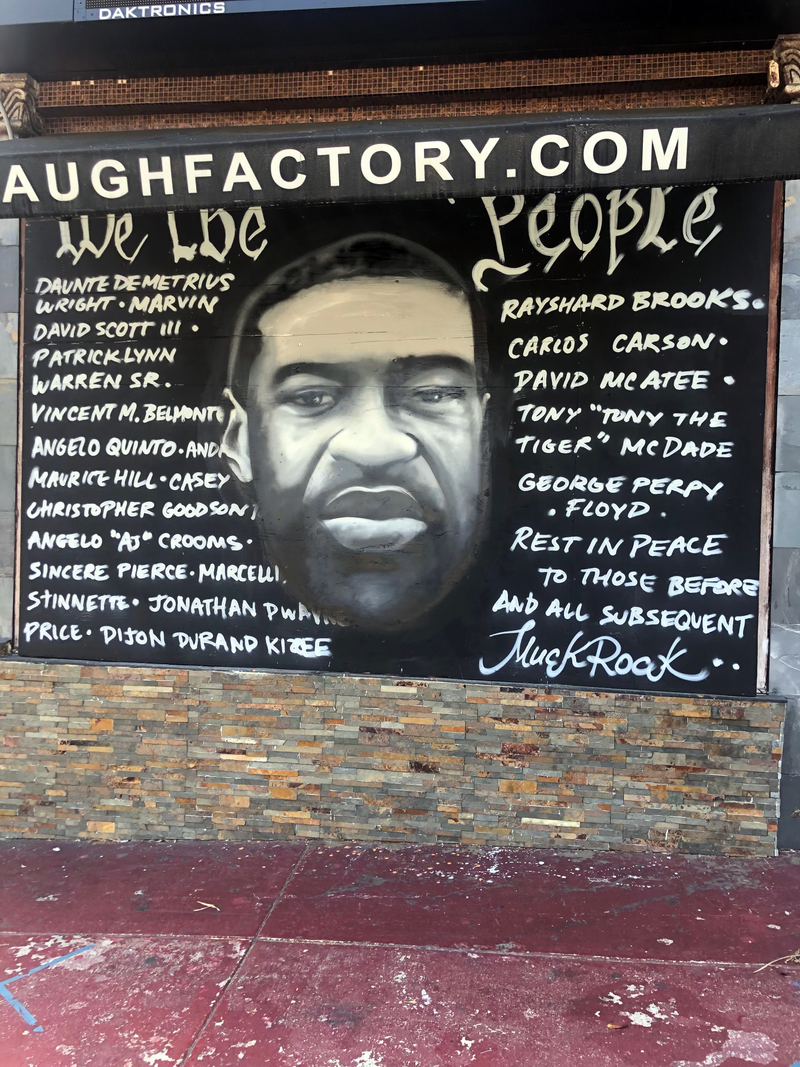 DAKTRONICS
AUGHFACTORY.COM
We the People
DAUNTE DEMETRIUS
WRIGHT • MARVIN
DAVID SCOTT III •
PATRICK LYNN
WARREN SR.
VINCENT M. BELMONTE
ANGELO QUINTO • AND
MAURICE HILL • CASEY
CHRISTOPHER GOODSON
ANGELO "AJ" CROOMS •
SINCERE PIERCE • MARCELLI
STINNETTE • JONATHAN DWAYNE
PRICE • DIJON DURAND KIZEE
RAYSHARD BROOKS •
CARLOS CARSON •
DAVID MCATEE •
TONY "TONY THE
TIGER" MCDADE
GEORGE PERRY
• FLOYD •
REST IN PEACE
TO THOSE BEFORE
AND ALL SUBSEQUENT
MuckRock • •